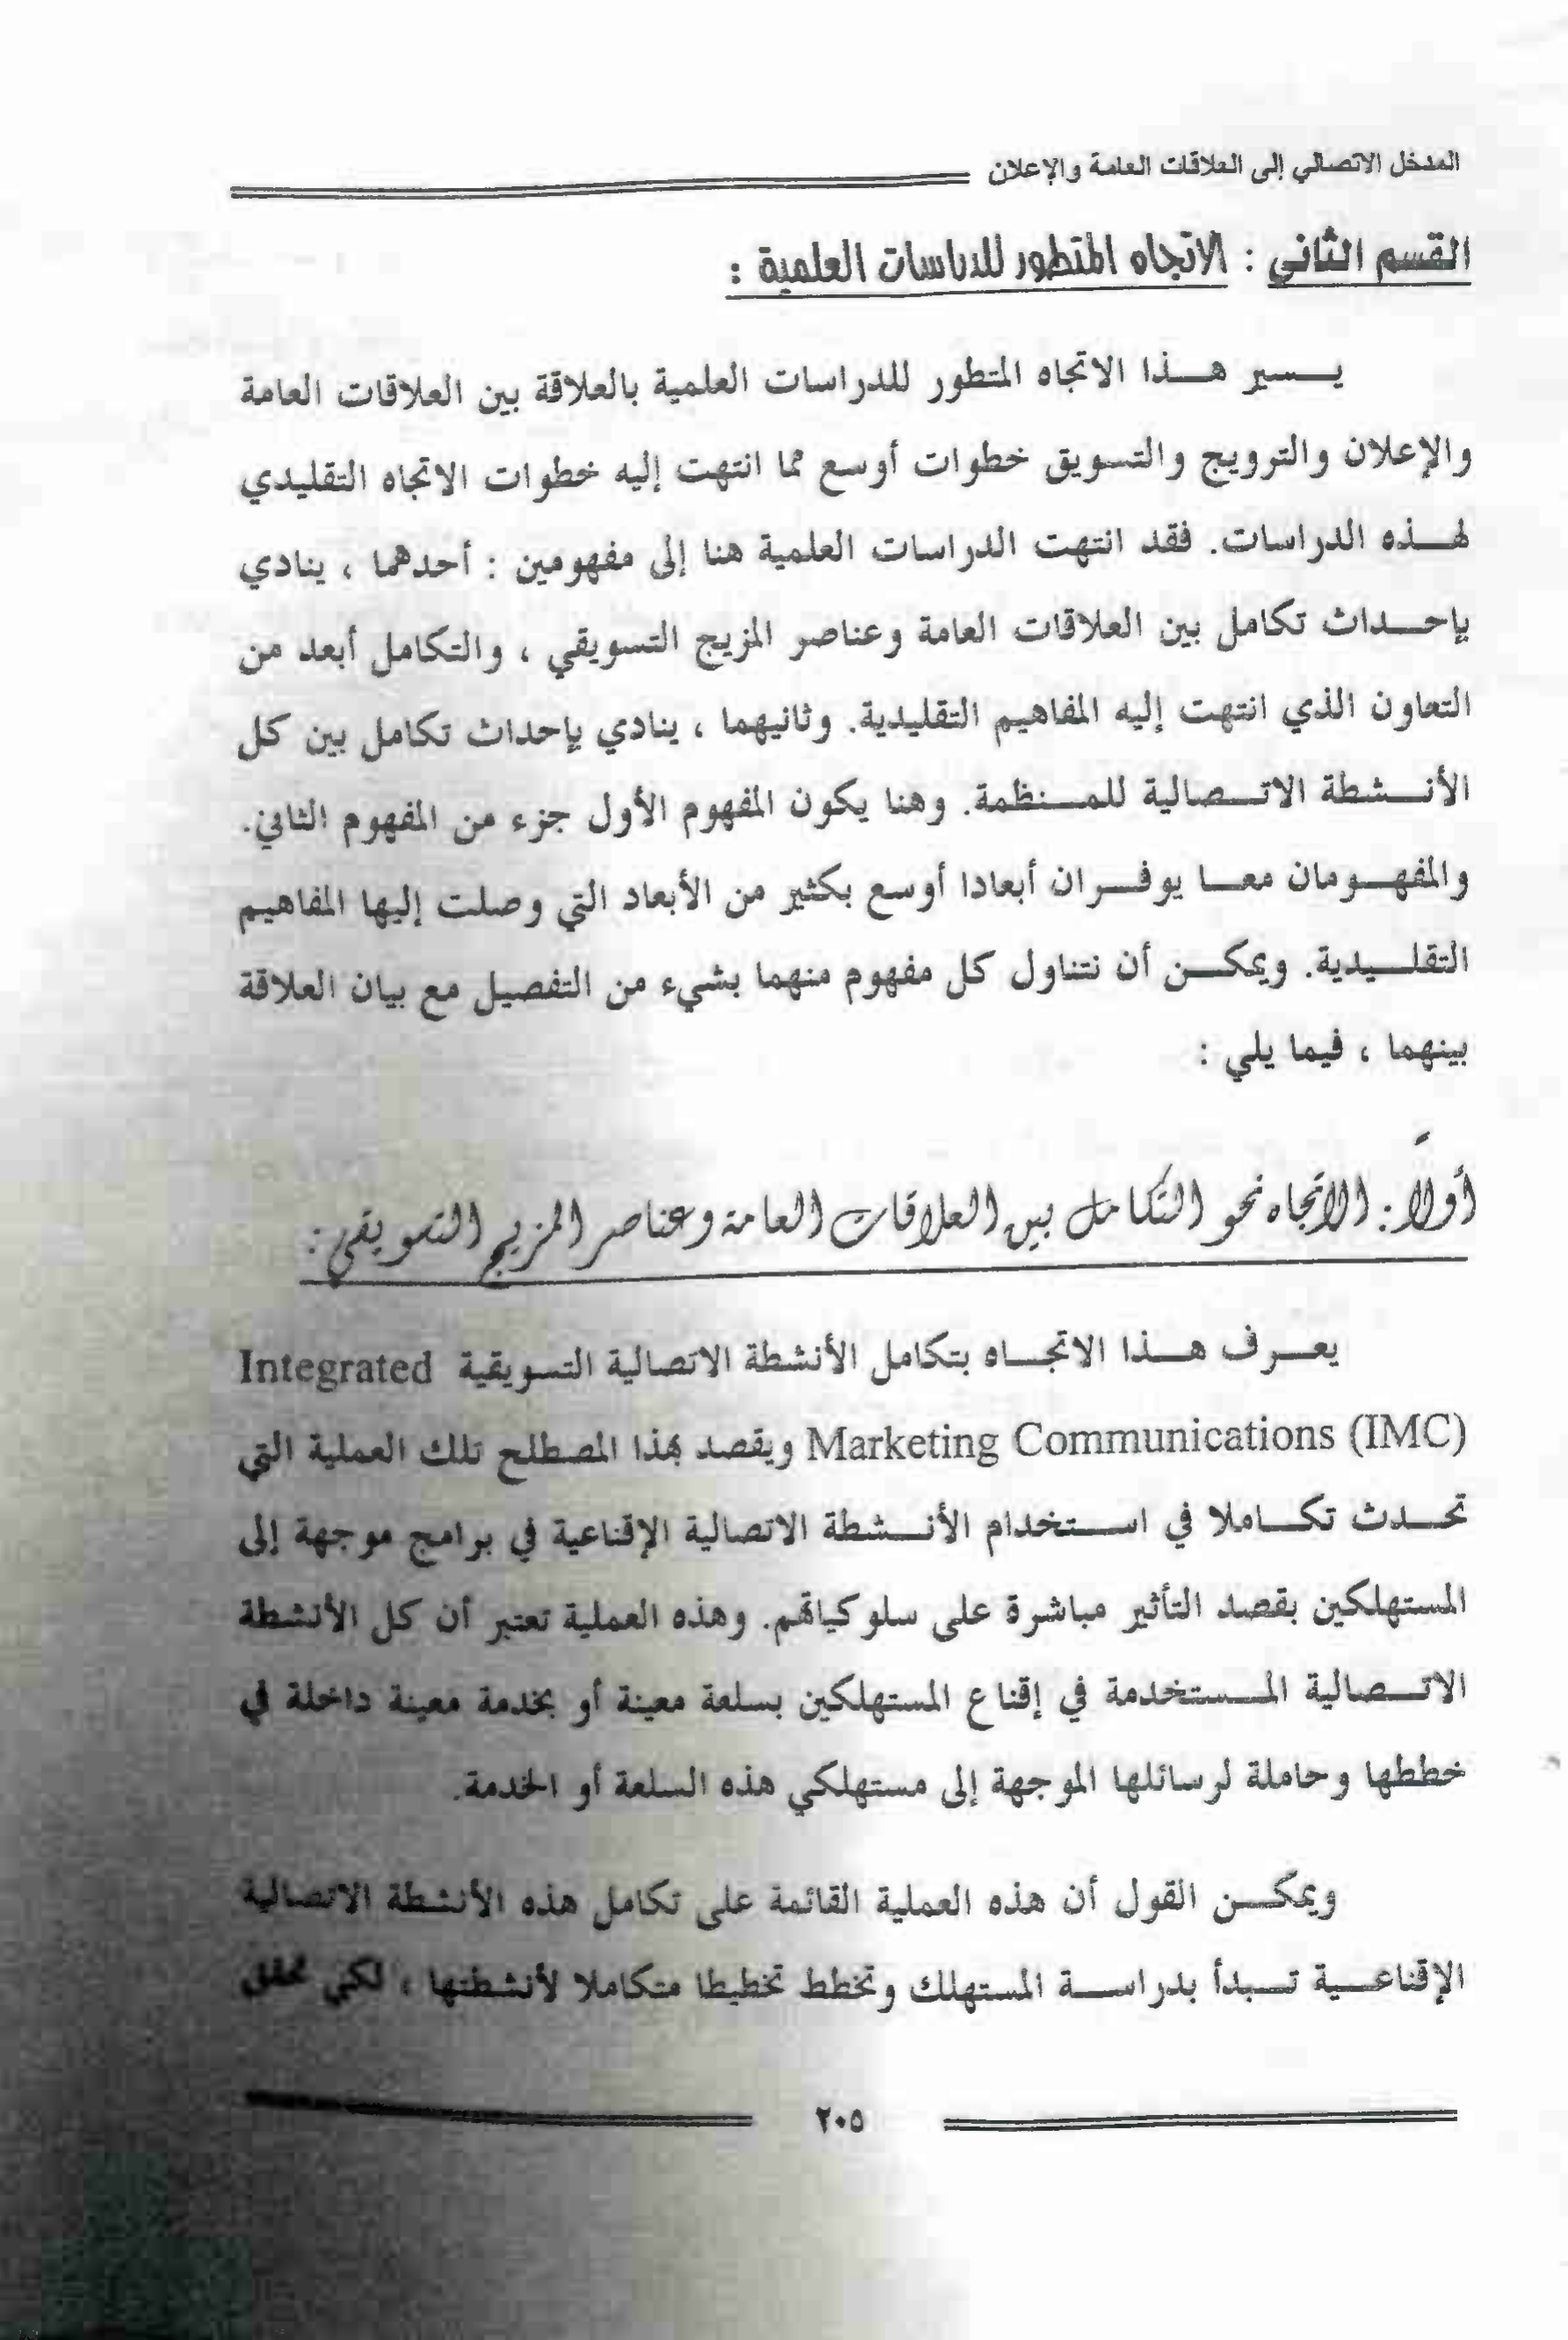 المدخل الاتصالي إلى العلاقات العامة والإعلان
القسم الثاني : الاتجاه المتطور للدراسات العلمية :
يسير هذا الاتجاه المتطور للدراسات العلمية بالعلاقة بين العلاقات العامة
والإعلان والترويج والتسويق خطوات أوسع مما انتهت إليه خطوات الاتجاه التقليدي
لهذه الدراسات. فقد انتهت الدراسات العلمية هنا إلى مفهومين : أحدهما ، ينادي
بإحداث تكامل بين العلاقات العامة وعناصر المزيج التسويقي ، والتكامل أبعد من
التعاون الذي انتهت إليه المفاهيم التقليدية. وثانيهما ، ينادي بإحداث تكامل بين كل
الأنشطة الاتصالية للمنظمة. وهنا يكون المفهوم الأول جزء من المفهوم الثاني.
والمفهومان معا يوفران أبعادا أوسع بكثير من الأبعاد التي وصلت إليها المفاهيم
التقليدية. ويمكن أن نتناول كل مفهوم منهما بشيء من التفصيل مع بيان العلاقة
بينهما ، فيما يلي :
أولاً : الاتجاه نحو التكامل بين العلاقات العامة وعناصر المزيج التسويقي :
يعرف هذا الاتجاه بتكامل الأنشطة الاتصالية التسويقية Integrated
Marketing Communications (IMC) ويقصد بهذا المصطلح تلك العملية التي
تحدث تكاملا في استخدام الأنشطة الاتصالية الإقناعية في برامج موجهة إلى
المستهلكين بقصد التأثير مباشرة على سلوكياتهم. وهذه العملية تعتبر أن كل الأنشطة
الاتصالية المستخدمة في إقناع المستهلكين بسلعة معينة أو بخدمة معينة داخلة في
خططها وحاملة لرسائلها الموجهة إلى مستهلكي هذه السلعة أو الخدمة.
ويمكن القول أن هذه العملية القائمة على تكامل هذه الأنشطة الاتصالية
الإقناعية تبدأ بدراسة المستهلك وتخطط تخطيطا متكاملا لأنشطتها ، لكي تحقق
٢٠٥